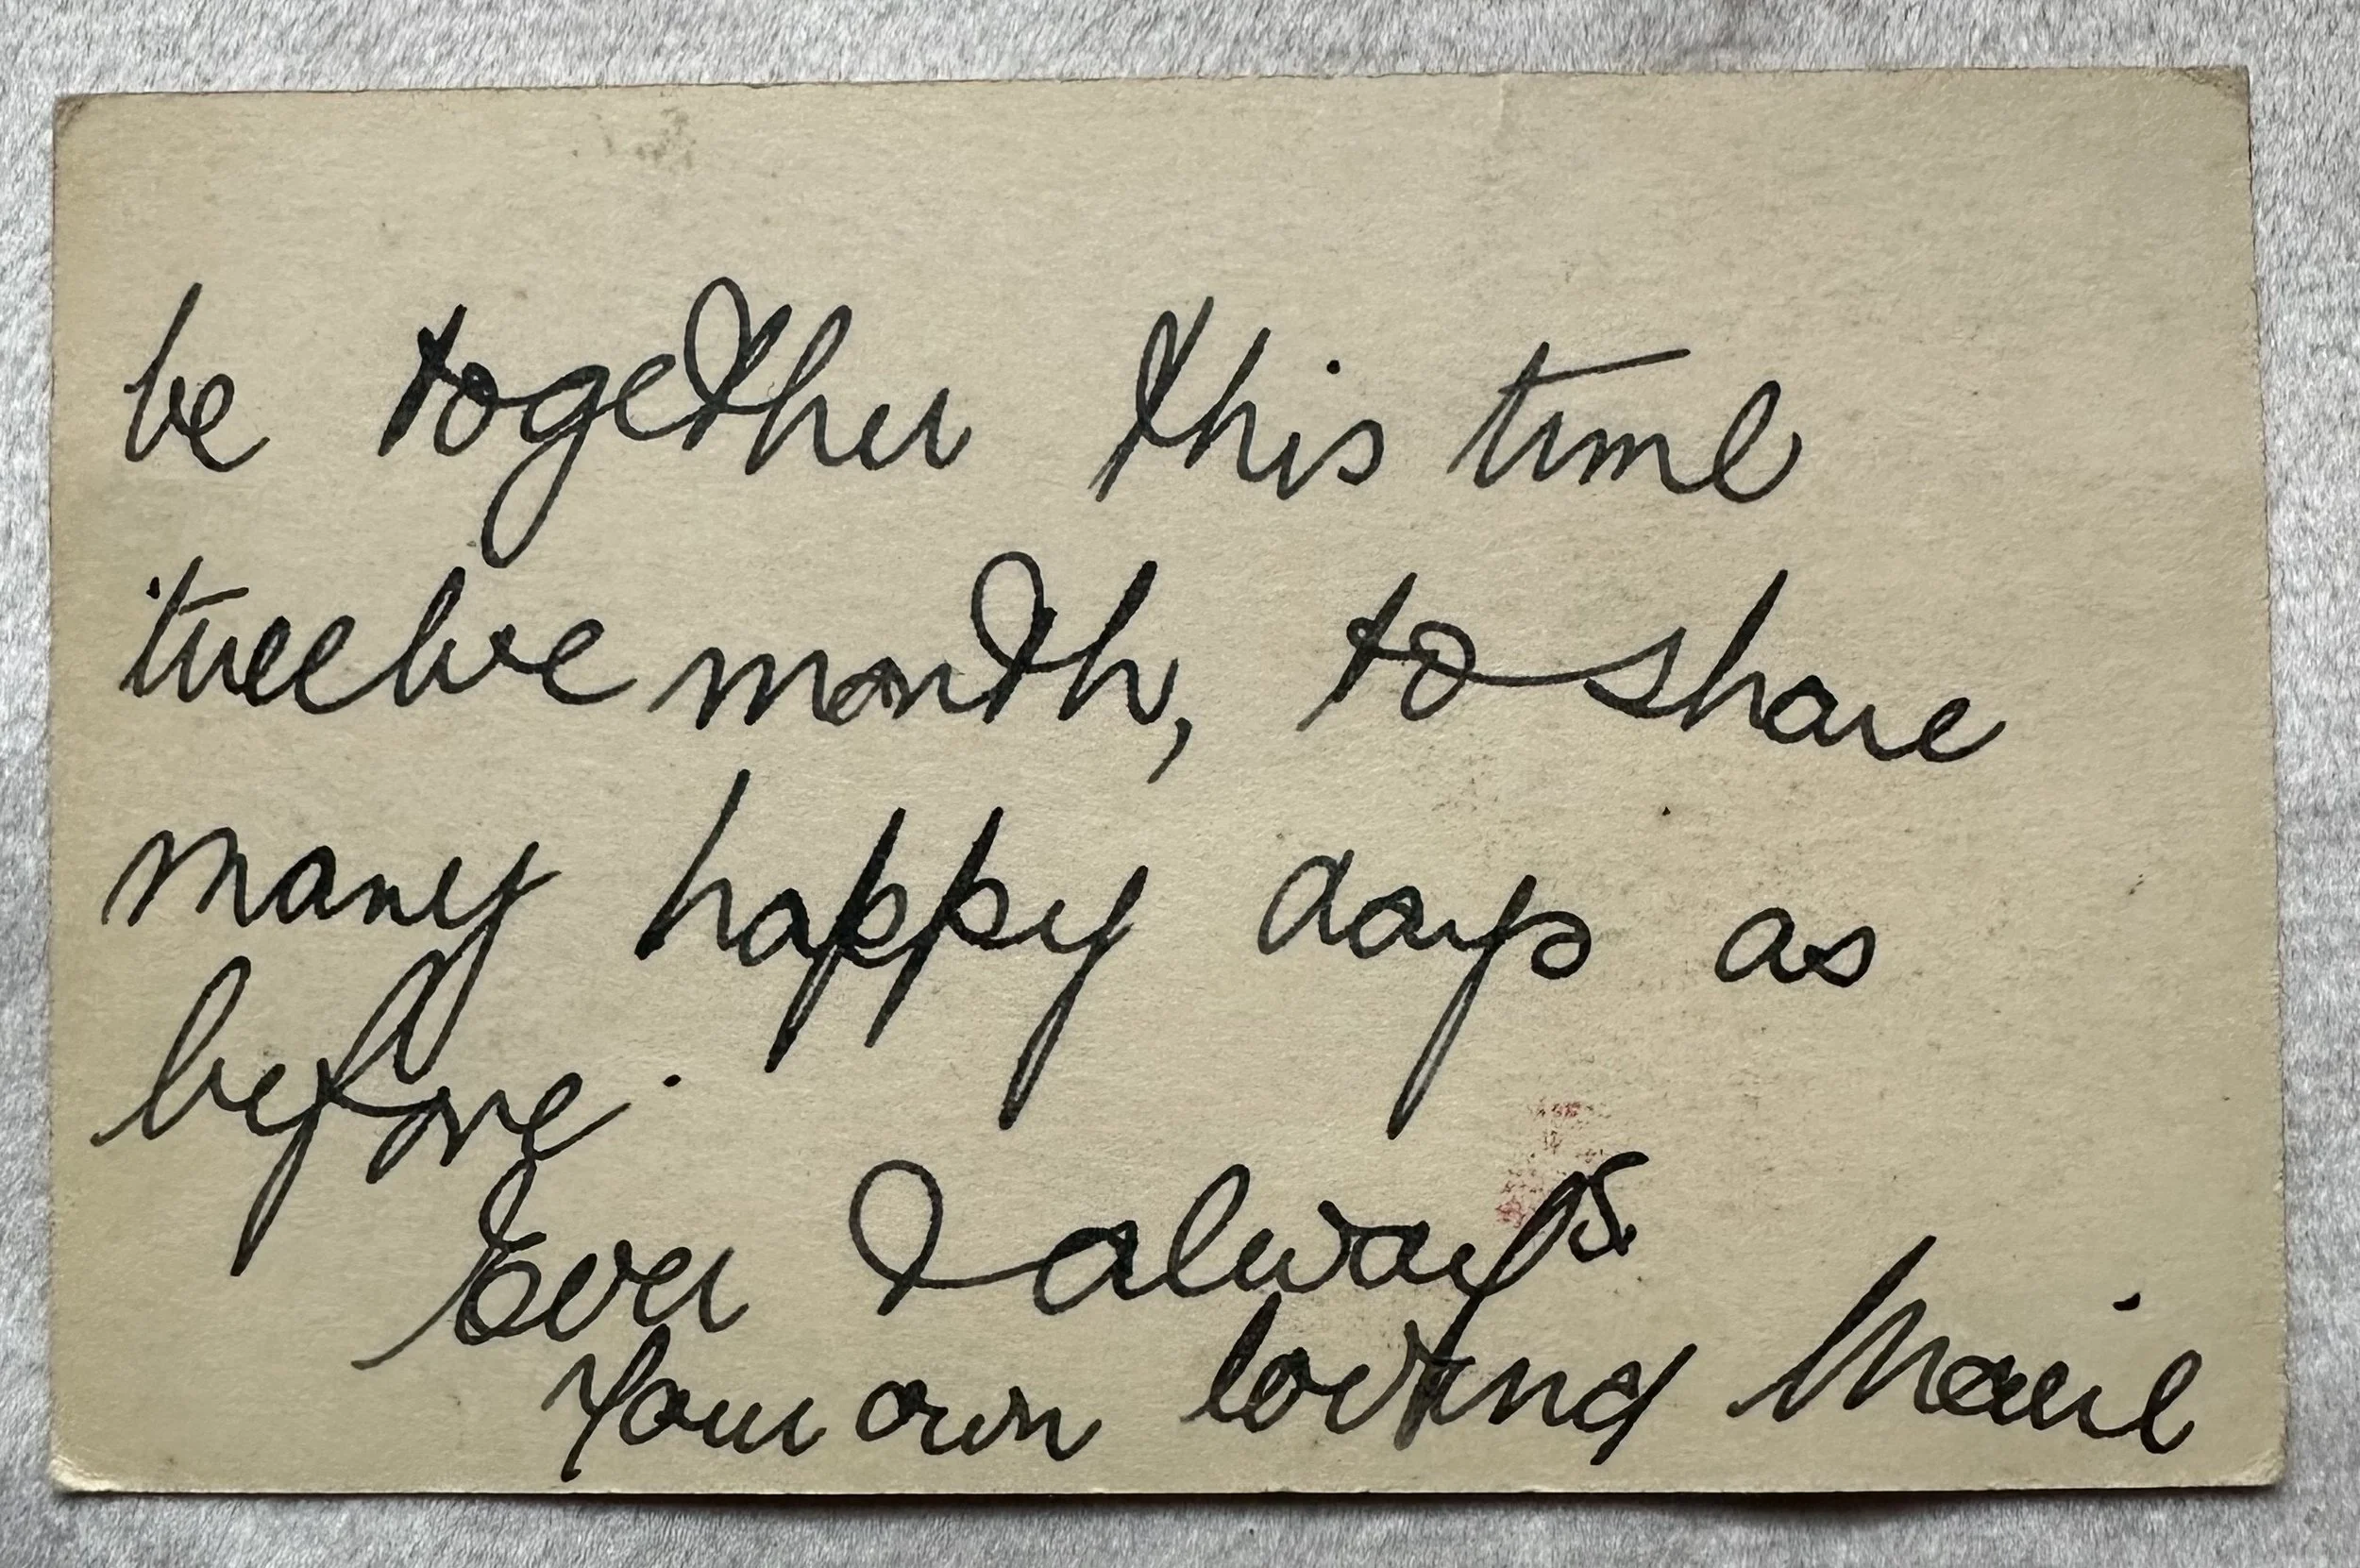 be together this time
twelve month, to share
many happy days as
before.
Ever & always.
Your own loving Marie